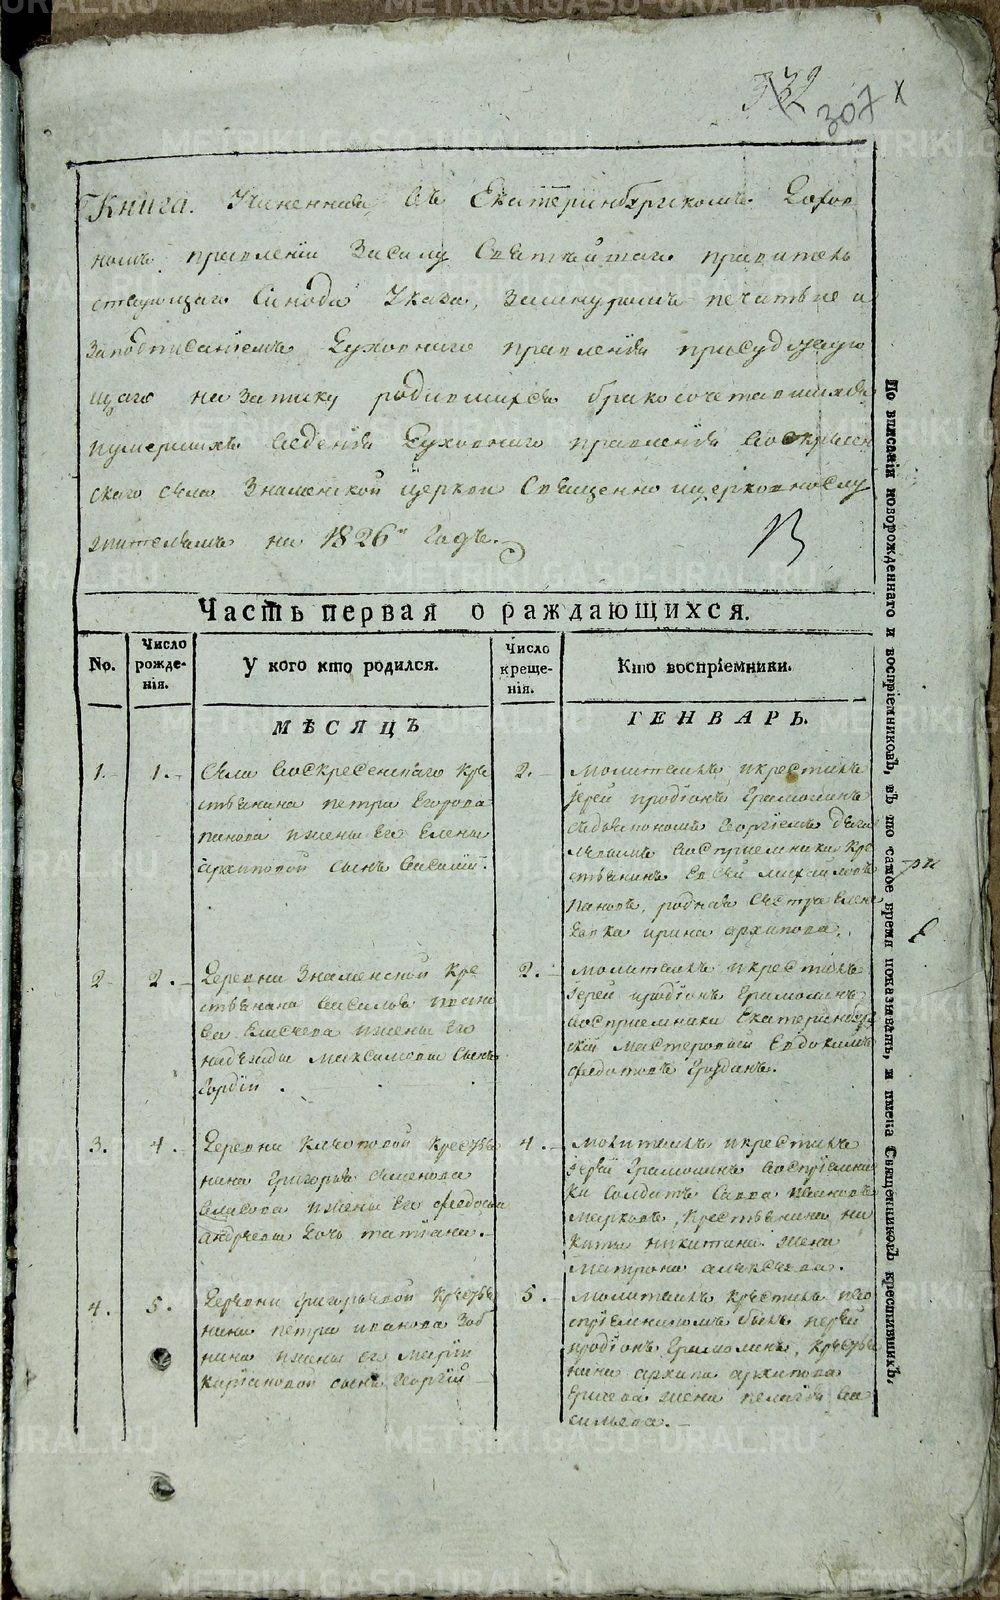 307
Книга. Учиненная въ Екатеринбургскомъ Духов
номъ правлении Засилу Святѣйшаго правитель
ствующаго Синода Указа, Зашнуромъ печатью и
Заподписаніемъ Духовнаго правленія присудствую
щаго на записку родившихся бракосочетавшихся
иумершихъ вѣденія Духовнаго правленія Воскресен
скаго села Знаменской Церкви Священно ицерковнослу
жителямъ на 1826й Годъ.
Часть первая о раждающихся.
No.
Число рожде- нія.
У кого кто родился.
Число креще- нія.
Кто воспріемники.
МѢСЯЦЪ
ГЕНВАРЬ.
1. 1.
Села Воскресенскаго Кре
стьянина петра Егорова
панова ижены Его Елены
архиповой сынъ Василій.
2.
молитвилъ икрестилъ
Іерей
Георгіемъ
воспріемники Кре
стьянинъ Евсей михайловъ
пановъ, родная сестра
ирина архипова.
2 2.
Деревни Знаменской Кре
стьянина Василья
ва Елисеева ижены Его
надежды максимовы сынъ
Гордій.
2.
молитвилъ икрестилъ
Іерей
воспріемники Екатеринбург
скій мастеровый Евдокимъ
федотовъ
3. 4.
Деревни Крестья
нина Григорья Семенова
Власова ижены Его федосьи
андреевы дочь татіана.
4.
молитвилъ икрестилъ
Іерей воспріемни
ки Солдатъ Савва ивановъ
марковъ, Крестьянина ни
киты никитина жена
матрона алексеева.
4. 5.
Деревни Григорьевой Крестья
нина петра иванова Заб
нина ижены его маріи
сынъ Георгій
5.
молитвилъ крестилъ иво
спріемникомъ былъ Іерей
крестья
нина архипа архипова
жена пелагія ва
сильева.
По вписаніи новорожденнаго и воспріемниковъ, въ то самое время показывать, и имена Священниковъ крестившихъ,
METRIKI.GASO-URAL.RU